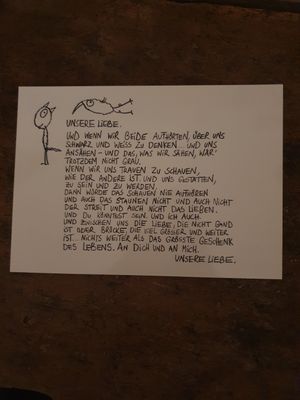 UNSERE LIEBE.
UND WENN WIR BEIDE AUFHÖRTEN, ÜBER UNS
SCHWARZ UND WEISS ZU DENKEN. UND UNS
ANSÄHEN - UND DAS, WAS WIR SÄHEN, WÄR'
TROTZDEM NICHT GRAU.
WENN WIR UNS TRAUEN ZU SCHAUEN,
WIE DER ANDERE IST. UND UNS GESTATTEN,
ZU SEIN UND ZU WERDEN.
DANN WÜRDE DAS SCHAUEN NIE AUFHÖREN
UND AUCH DAS STAUNEN NICHT UND AUCH NICHT
DER STREIT UND AUCH NICHT DAS LIEBEN.
UND DU KÖNNTEST SEIN. UND ICH AUCH.
UND ZWISCHEN UNS DIE LIEBE, DIE NICHT BAND
IST ODER BRÜCKE, DIE VIEL GRÖSSER UND WEITER
IST. NICHTS WEITER ALS DAS GRÖSSTE GESCHENK
DES LEBENS. AN DICH UND AN MICH.
UNSERE LIEBE.